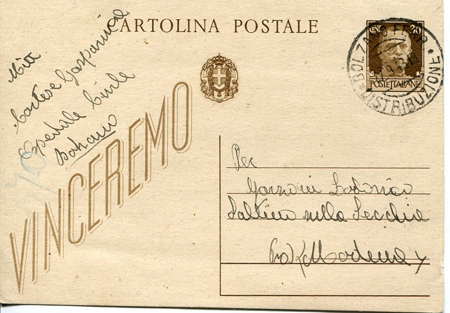 CARTOLINA POSTALE
POSTE ITALIANE
BOLZANO
DISTRIBUZIONE
Mitt
Gasparini
Ospedale Civile
Bolzano
VINCEREMO
Per
Lodovico
Saltino sulla Secchia
Modena